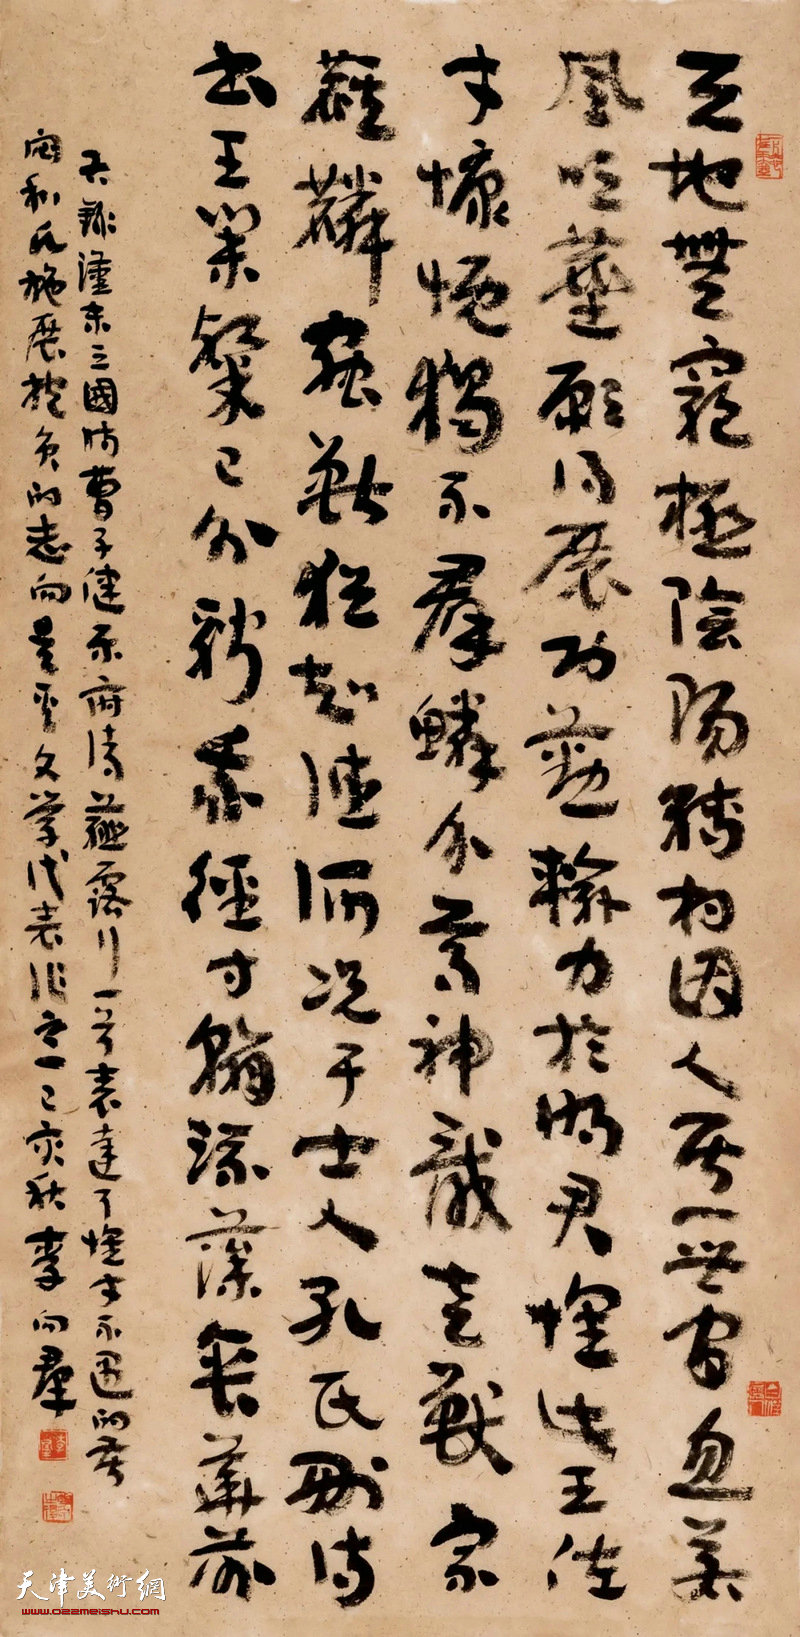 天地無窮極陰陽轉相因人居一世間忽若
風吹塵願得展功勤輸力於明君懷此王佐
才慷慨獨不羣鱗介尊神龍走獸宗
麒麟蟲獸猶知德何況于士人孔氏刪詩
書王業粲已分騁我徑寸翰流藻垂華芬
右錄漢末三國時曹子建樂府詩薤露行一首表達了懷才不遇的苦
悶和施展抱負的志向是其文學代表作之一己亥秋李向羣
天津美術網
www.022meishu.com